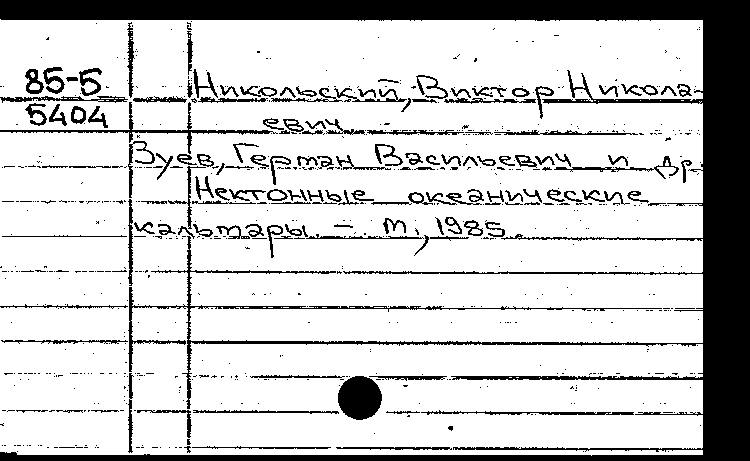 85-5 Никольский, Виктор Никола-
5404 евич
Зуев, Герман Васильевич и др.
Нектонные океанические
кальмары. – М., 1985.